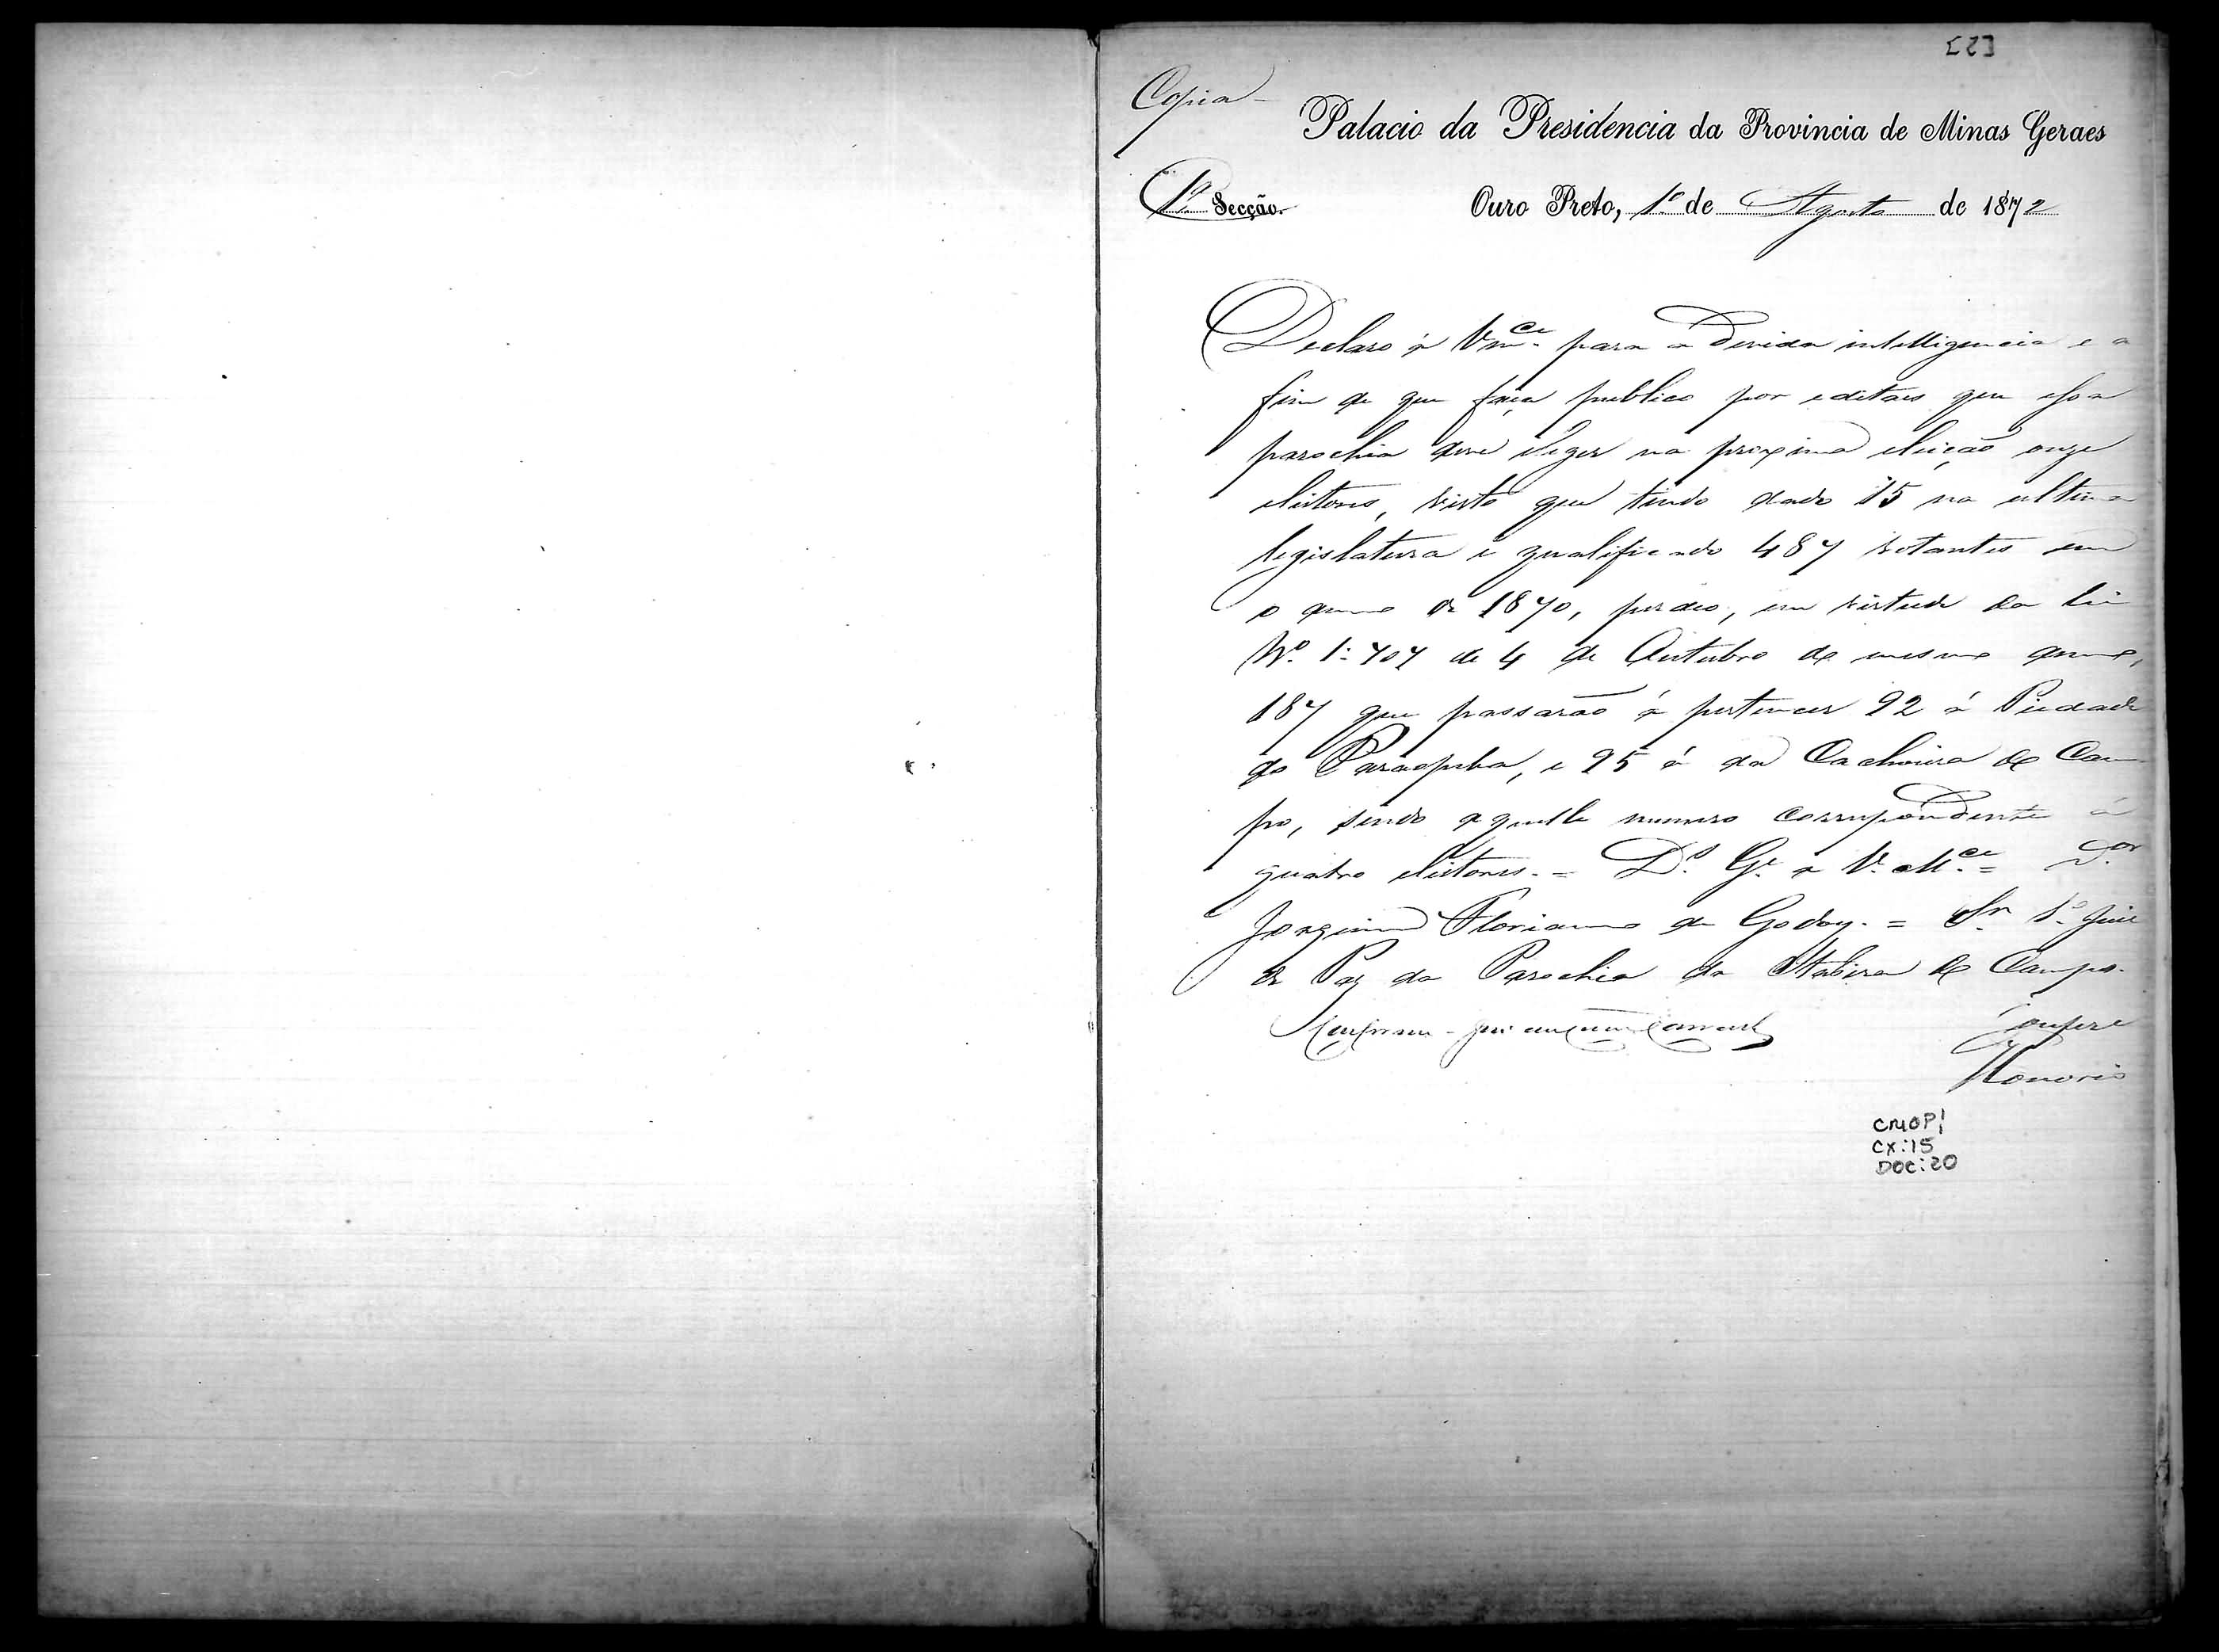 [2]
Copia
Palacio da Presidencia da Provincia de Minas Geraes
1ª Secção.
Ouro Preto, 1º de Agosto de 1872
Declaro á Vmce. para a devida intelligencia e a
fim de que faça publico por editaes que essa
parochia deve eleger na proxima eleição onze
eleitores, visto que tendo dado 15 na ultima
legislatura e qualificado 487 votantes em
o anno de 1870, perdeo, em virtude da Lei
Nº. 1:707 de 4 de Outubro do mesmo anno,
187 que passarão á pertencer 92 á Piedade
do Paraopeba, e 95 á da Cachoeira do Cam
po, sendo aquelle numero correspondente á
quatro eleitores. = Ds. Ge. a V. Mce. = Dor.
Joaquim Floriano de Godoy. = Sr. 1º. Juiz
de Paz da Parochia da Itabira do Campo.
Conforme
Confere
Honorio
CMOP
CX:15
DOC:20